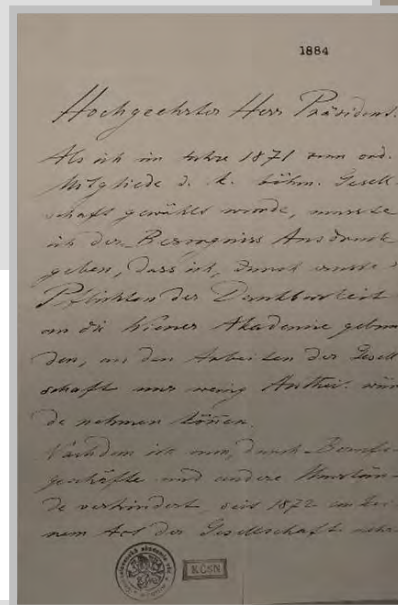 1884
Hochgeehrter Herr Präsident.
Als ich im Jahre 1871 zum ord.
Mitgliede d. k. böhm. Gesell-
schaft gewählt wurde, musste
ich der Besorgniss Ausdruck
geben, dass ich, durch ernste
Pflichten der Dankbarkeit
an die Wiener Akademie gebun
den, an den Arbeiten der Gesell
schaft nur wenig Antheil wür
de nehmen können.
Nachdem ich nun, durch Berufs-
geschäfte und andere Umstän-
de verhindert, seit 1872 an kei
nem Act der Gesellschaft
KČSN